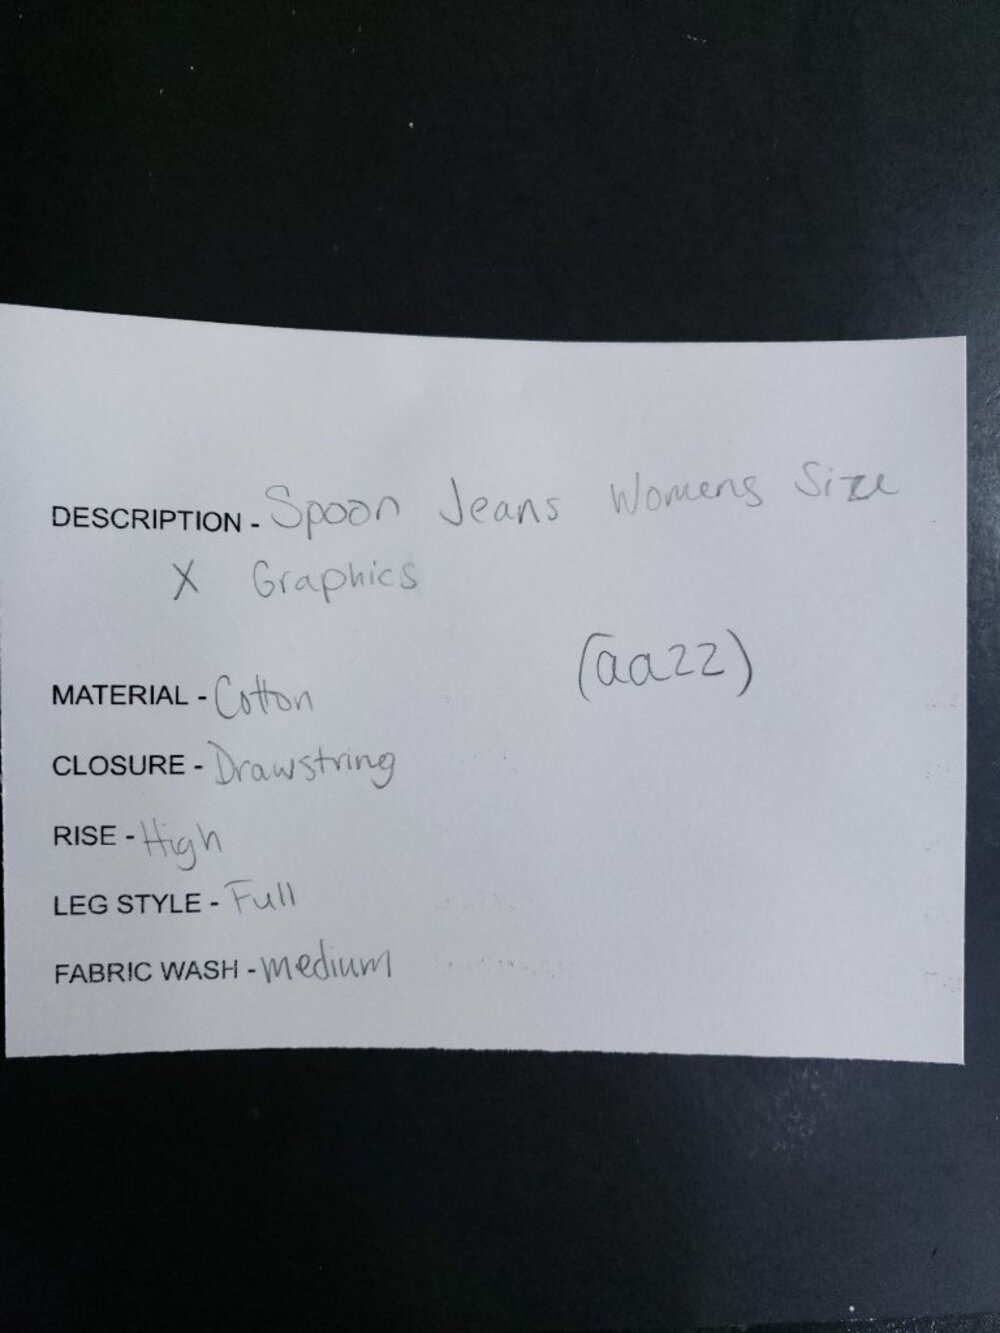 DESCRIPTION - Spoon Jeans Womens Size
X Graphics
(aazz)
MATERIAL - Cotton
CLOSURE - Drawstring
RISE - High
LEG STYLE - Full
FABRIC WASH - medium